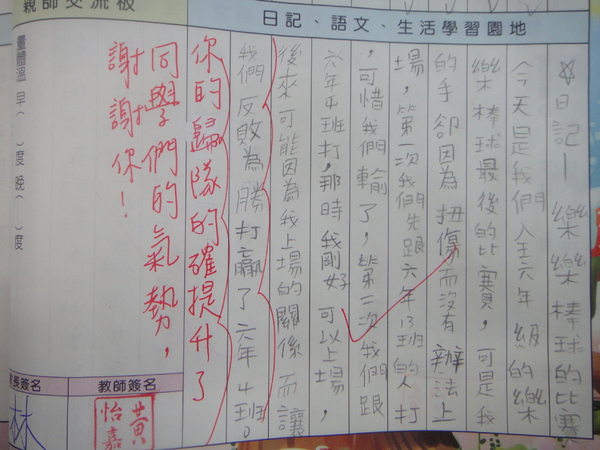 親師交流板
日記、語文、生活學習園地
☆日記—樂樂棒球的比賽
今天是我們全六年級的樂
樂棒球最後的比賽，可是我
的手卻因為扭傷而沒有辦法上
場，第一次我們先跟六年13班的人打
，可惜我們輸了，第二次我們跟
六年4班打，那時我剛好可以上場，
後來可能因為我上場的關係而讓
我們反敗為勝打贏了六年4班。
你的歸隊的確提升了
同學們的氣勢，
謝謝你！
量體溫 早( )度 晚( )度
教師簽名
黃怡嘉
長簽名
林